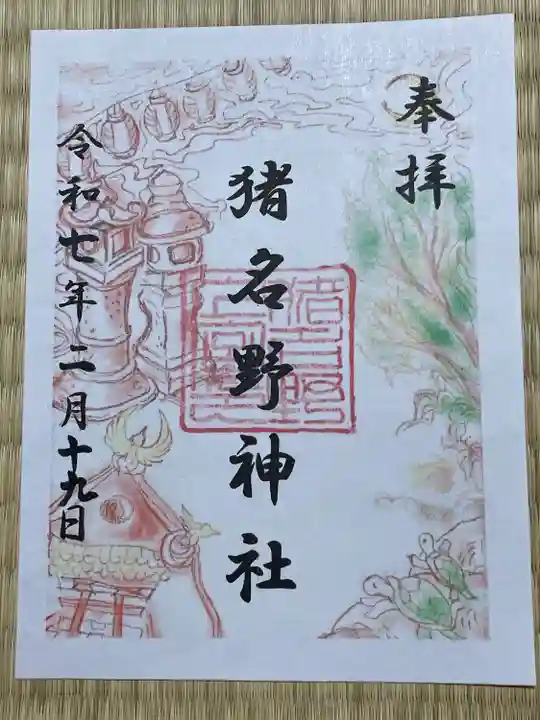 奉拝
猪名野神社
令和七年二月十九日